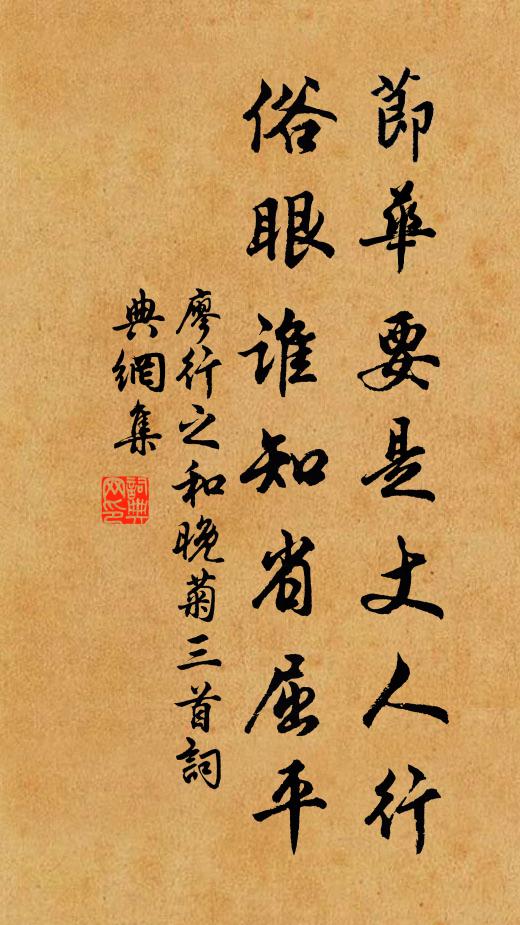 節華要是丈人行
俗眼誰知省屈平
廖行之和晚菊三首詞
典網集
詞典網印